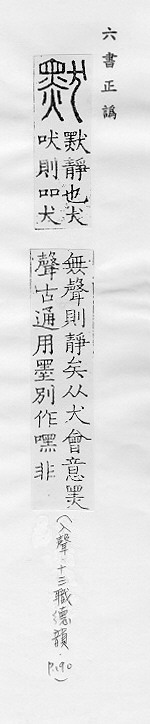 六書正譌
默
默靜也犬
吠則吅犬
無聲則靜矣从犬會意黑
聲古通用墨別作嘿非
(入聲・十三職德韻・P.190)